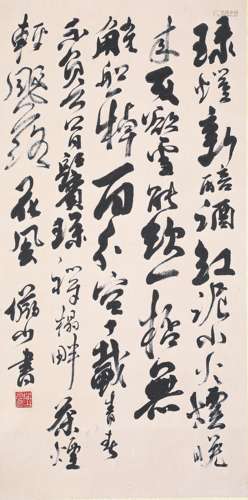 綠螘新醅酒紅泥小火爐晚
來天欲雪能飲一杯無
觥船棹百分空十載青春
不負公今日鬢絲禪榻畔茶煙
輕颺落花風 儼少書